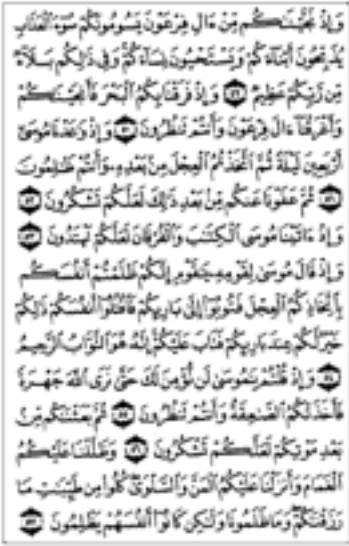 وَإِذْ نَجَّيْنَـٰكُم مِّنْ ءَالِ فِرْعَوْنَ يَسُومُونَكُمْ سُوٓءَ ٱلْعَذَابِ
يُذَبِّحُونَ أَبْنَآءَكُمْ وَيَسْتَحْيُونَ نِسَآءَكُمْ وَفِى ذَٰلِكُم بَلَآءٌ
مِّن رَّبِّكُمْ عَظِيمٌ ﴿٤٩﴾ وَإِذْ فَرَقْنَا بِكُمُ ٱلْبَحْرَ فَأَنجَيْنَـٰكُمْ
وَأَغْرَقْنَآ ءَالَ فِرْعَوْنَ وَأَنتُمْ تَنظُرُونَ ﴿٥٠﴾ وَإِذْ وَٰعَدْنَا مُوسَىٰٓ
أَرْبَعِينَ لَيْلَةً ثُمَّ ٱتَّخَذْتُمُ ٱلْعِجْلَ مِنۢ بَعْدِهِۦ وَأَنتُمْ ظَـٰلِمُونَ
﴿٥١﴾ ثُمَّ عَفَوْنَا عَنكُم مِّنۢ بَعْدِ ذَٰلِكَ لَعَلَّكُمْ تَشْكُرُونَ ﴿٥٢﴾
وَإِذْ ءَاتَيْنَا مُوسَى ٱلْكِتَـٰبَ وَٱلْفُرْقَانَ لَعَلَّكُمْ تَهْتَدُونَ ﴿٥٣﴾
وَإِذْ قَالَ مُوسَىٰ لِقَوْمِهِۦ يَـٰقَوْمِ إِنَّكُمْ ظَلَمْتُمْ أَنفُسَكُم
بِٱتِّخَاذِكُمُ ٱلْعِجْلَ فَتُوبُوٓا۟ إِلَىٰ بَارِئِكُمْ فَٱقْتُلُوٓا۟ أَنفُسَكُمْ ذَٰلِكُمْ
خَيْرٌ لَّكُمْ عِندَ بَارِئِكُمْ فَتَابَ عَلَيْكُمْ إِنَّهُۥ هُوَ ٱلتَّوَّابُ ٱلرَّحِيمُ
﴿٥٤﴾ وَإِذْ قُلْتُمْ يَـٰمُوسَىٰ لَن نُّؤْمِنَ لَكَ حَتَّىٰ نَرَى ٱللَّهَ جَهْرَةً
فَأَخَذَتْكُمُ ٱلصَّـٰعِقَةُ وَأَنتُمْ تَنظُرُونَ ﴿٥٥﴾ ثُمَّ بَعَثْنَـٰكُم مِّنۢ
بَعْدِ مَوْتِكُمْ لَعَلَّكُمْ تَشْكُرُونَ ﴿٥٦﴾ وَظَلَّلْنَا عَلَيْكُمُ
ٱلْغَمَامَ وَأَنزَلْنَا عَلَيْكُمُ ٱلْمَنَّ وَٱلسَّلْوَىٰ كُلُوا۟ مِن طَيِّبَـٰتِ مَا
رَزَقْنَـٰكُمْ وَمَا ظَلَمُونَا وَلَـٰكِن كَانُوٓا۟ أَنفُسَهُمْ يَظْلِمُونَ ﴿٥٧﴾